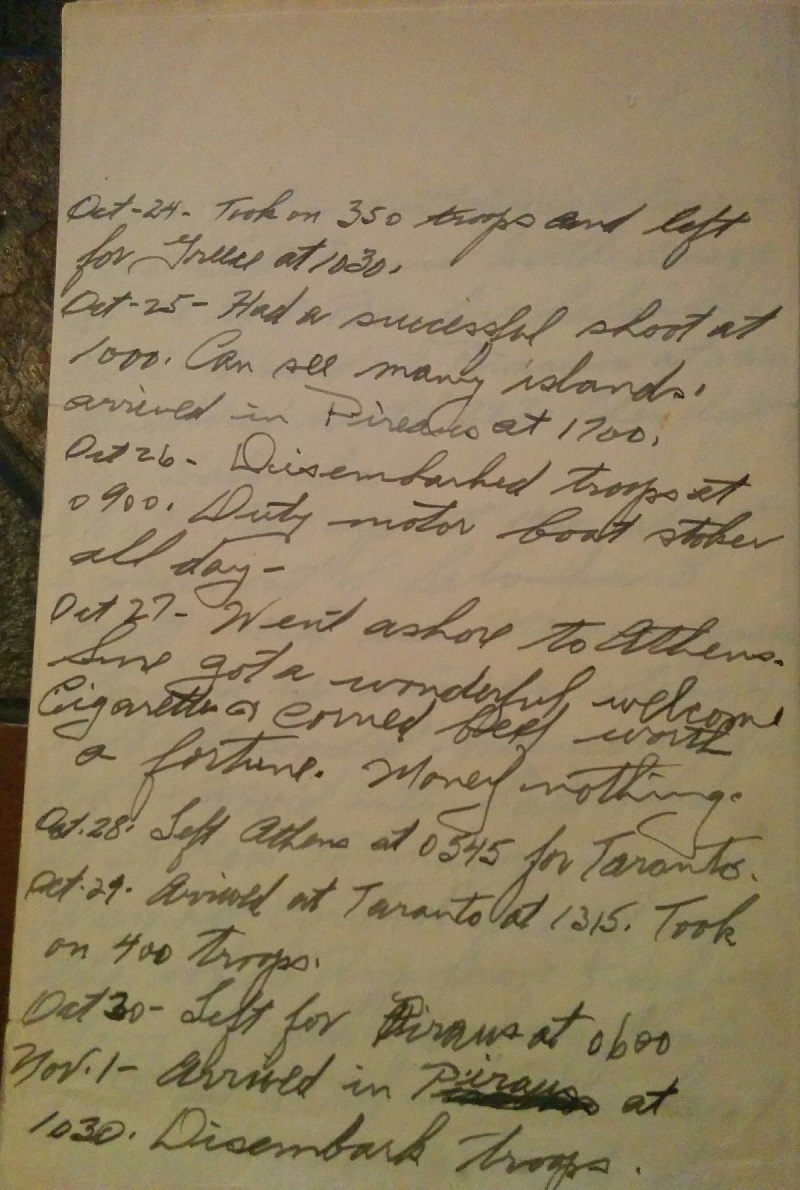 Oct-24- Took on 350 troops and left
for Greece at 1030.
Oct-25- Had a successful shoot at
1000. Can see many islands.
arrived in Pireaus at 1700.
Oct 26- Disembarked troops at
0900. Duty motor boat stoker
all day-
Oct 27- Went ashore to Athens.
Sure got a wonderful welcome
Cigarettes & corned beef worth
a fortune. Money nothing.
Oct.28. Left Athens at 0545 for Taranto.
Oct.29. Arrived at Taranto at 1315. Took
on 400 troops.
Oct 30- Left for Piraus at 0600
Nov.1- Arrived in Piraus at
1030. Disembark troops.